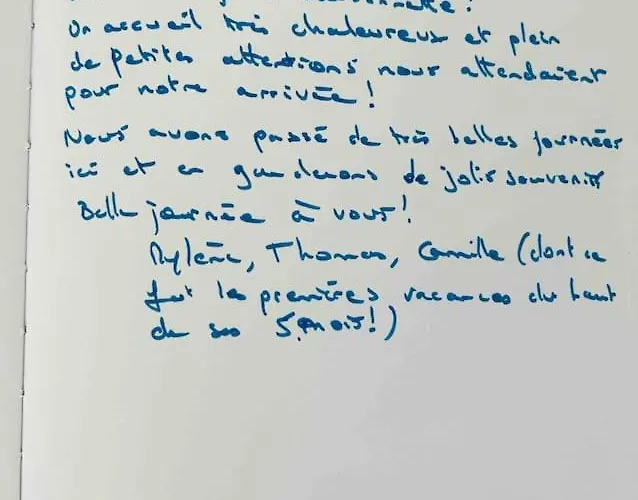 Un accueil très chaleureux et plein
de petites attentions nous attendaient
pour notre arrivée !
Nous avons passé de très belles journées
ici et en garderons de jolis souvenirs
Belle journée à vous !
Mylène, Thomas, Camille (dont ce
fut les premières vacances du haut
de ses 5 mois !)